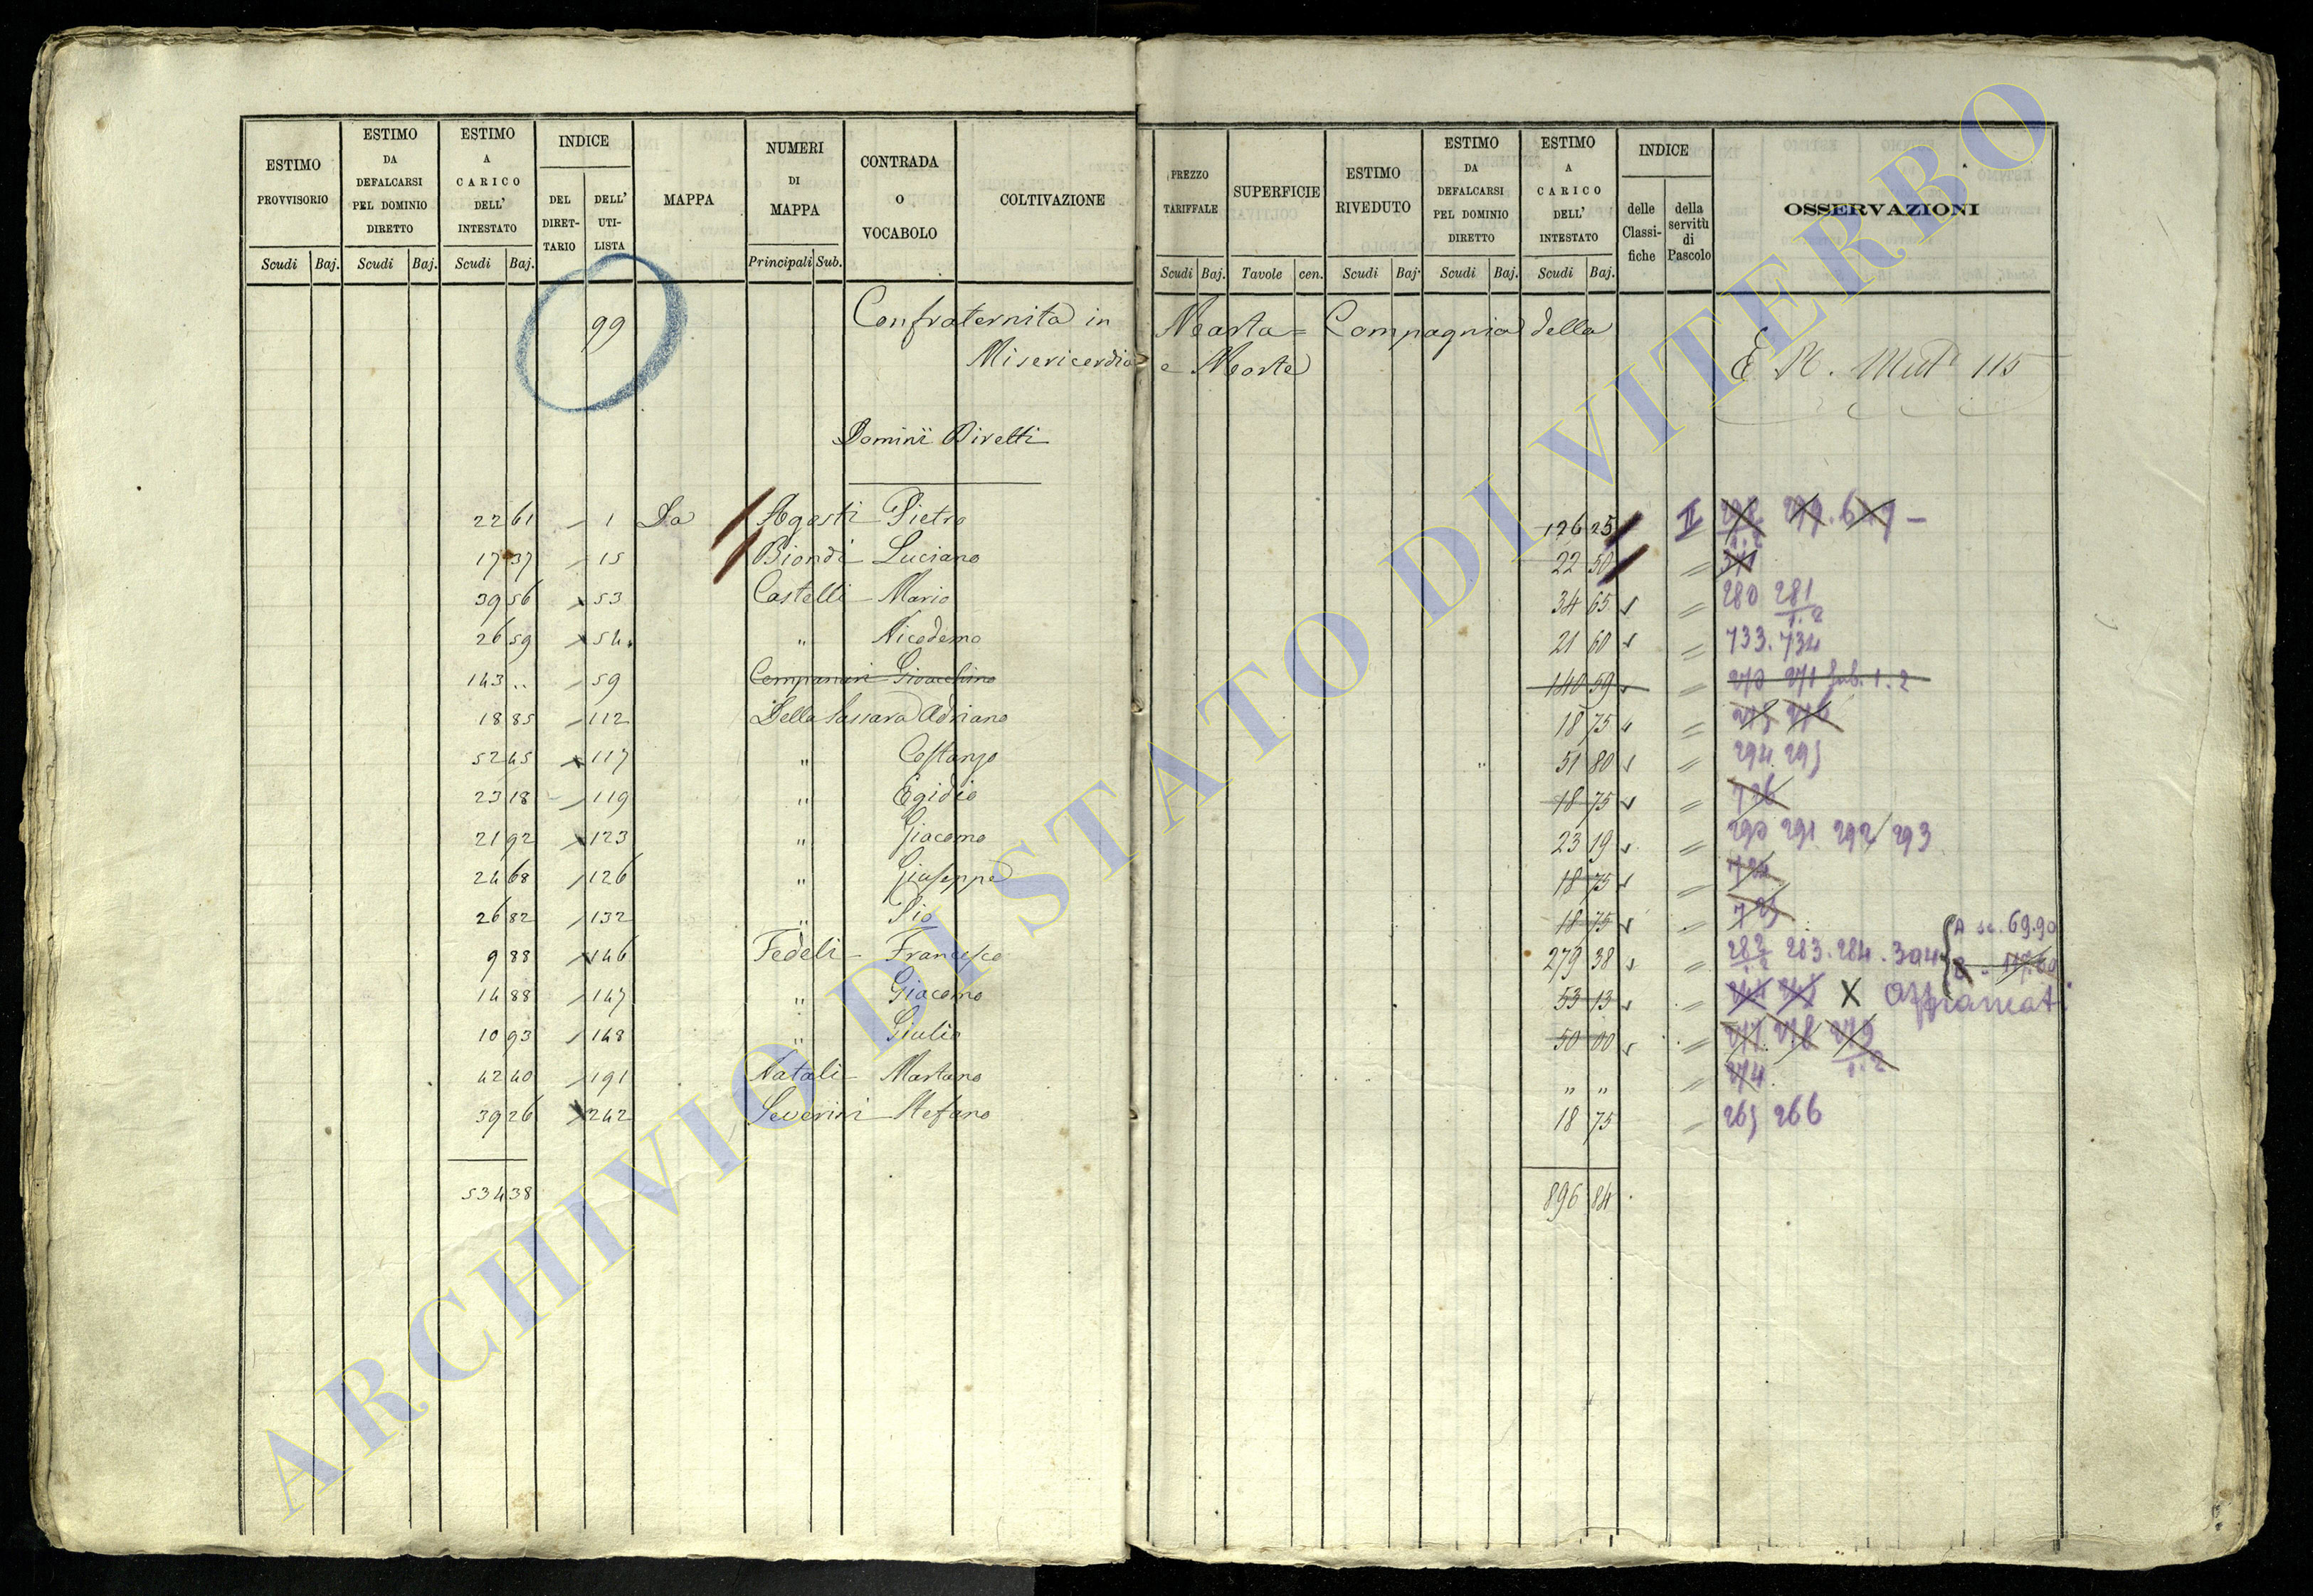 ESTIMO PROVVISORIO
Scudi Baj.
ESTIMO DA DEFALCARSI PEL DOMINIO DIRETTO
Scudi Baj.
ESTIMO A CARICO DELL' INTESTATO
Scudi Baj.
INDICE
DEL DIRET-TARIO
DELL' UTI-LISTA
MAPPA
NUMERI DI MAPPA
Principali Sub.
CONTRADA O VOCABOLO
COLTIVAZIONE
PREZZO TARIFFALE
Scudi Baj.
SUPERFICIE
Tavole cen.
ESTIMO RIVEDUTO
Scudi Baj.
ESTIMO DA DEFALCARSI PEL DOMINIO DIRETTO
Scudi Baj.
ESTIMO A CARICO DELL' INTESTATO
Scudi Baj.
INDICE
delle Classi-fiche
della servitù di Pascolo
OSSERVAZIONI
99 Confraternita in Marta = Compagnia della
Misericordia e Morte
115
Dominii Diretti
22 61 1 Da Agosti Pietro 126 25 II
17 37 15 Biondi Luciano 22 50 =
39 56 53 Castelli Mario 34 65 = 280 281 1.2
26 59 54 " Nicodemo 21 60 = 733. 734
143 .. 59 Companari Gioacchino 140 59 = 270 271 Sub. 1. 2
18 85 112 Della Passara Adriano 18 75 =
52 45 117 " Costanzo 51 80 = 294. 295
23 18 119 " Egidio 18 75 = 726
21 92 123 " Giacomo 23 19 = 290 291 292 293
24 68 126 " Giuseppe 18 75 =
26 82 132 " Pio 18 75 = 725
9 88 146 Fedeli Francesco 279 38 = 282 1.2 283. 284. 304 A sc. 69.90
14 88 147 " Giacomo 53 13 = X Affrancati
10 93 148 " Giulio 50 00 = 277 278 279 1.2
42 40 191 Natali Martano " " = 274
39 26 242 Severini Stefano 18 75 = 265 266
534 38 896 84
ARCHIVIO DI STATO DI VITERBO